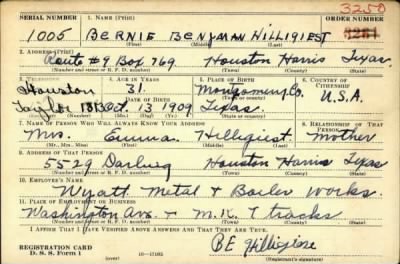 3250
SERIAL NUMBER 1. NAME (Print) ORDER NUMBER
1005 BERNIE BENJMAN HILLIGIEST 3251
(First) (Middle) (Last)
2. ADDRESS (Print)
Route #9 Box 769 Houston Harris Texas
(Number and street or R. F. D. number) (Town) (County) (State)
3. TELEPHONE 4. AGE IN YEARS 5. PLACE OF BIRTH 6. COUNTRY OF CITIZENSHIP
Houston 31. Montgomery Co. U.S.A.
DATE OF BIRTH
Taylor Oct. 13 1909 Texas.
7. NAME OF PERSON WHO WILL ALWAYS KNOW YOUR ADDRESS 8. RELATIONSHIP OF THAT PERSON
Mrs. Emma Hilligiest Mother
(Mr., Mrs., Miss) (First) (Middle) (Last)
9. ADDRESS OF THAT PERSON
5529 Darling Houston Harris Texas
(Number and street or R. F. D. number) (Town) (County) (State)
10. EMPLOYER'S NAME
Wyatt Metal & Boiler Works.
11. PLACE OF EMPLOYMENT OR BUSINESS
Washington Ave. & M.K.T tracks
(Number and street or R. F. D. number) (Town) (County) (State)
I AFFIRM THAT I HAVE VERIFIED ABOVE ANSWERS AND THAT THEY ARE TRUE.
REGISTRATION CARD
D. S. S. Form 1 (over) 16—17105